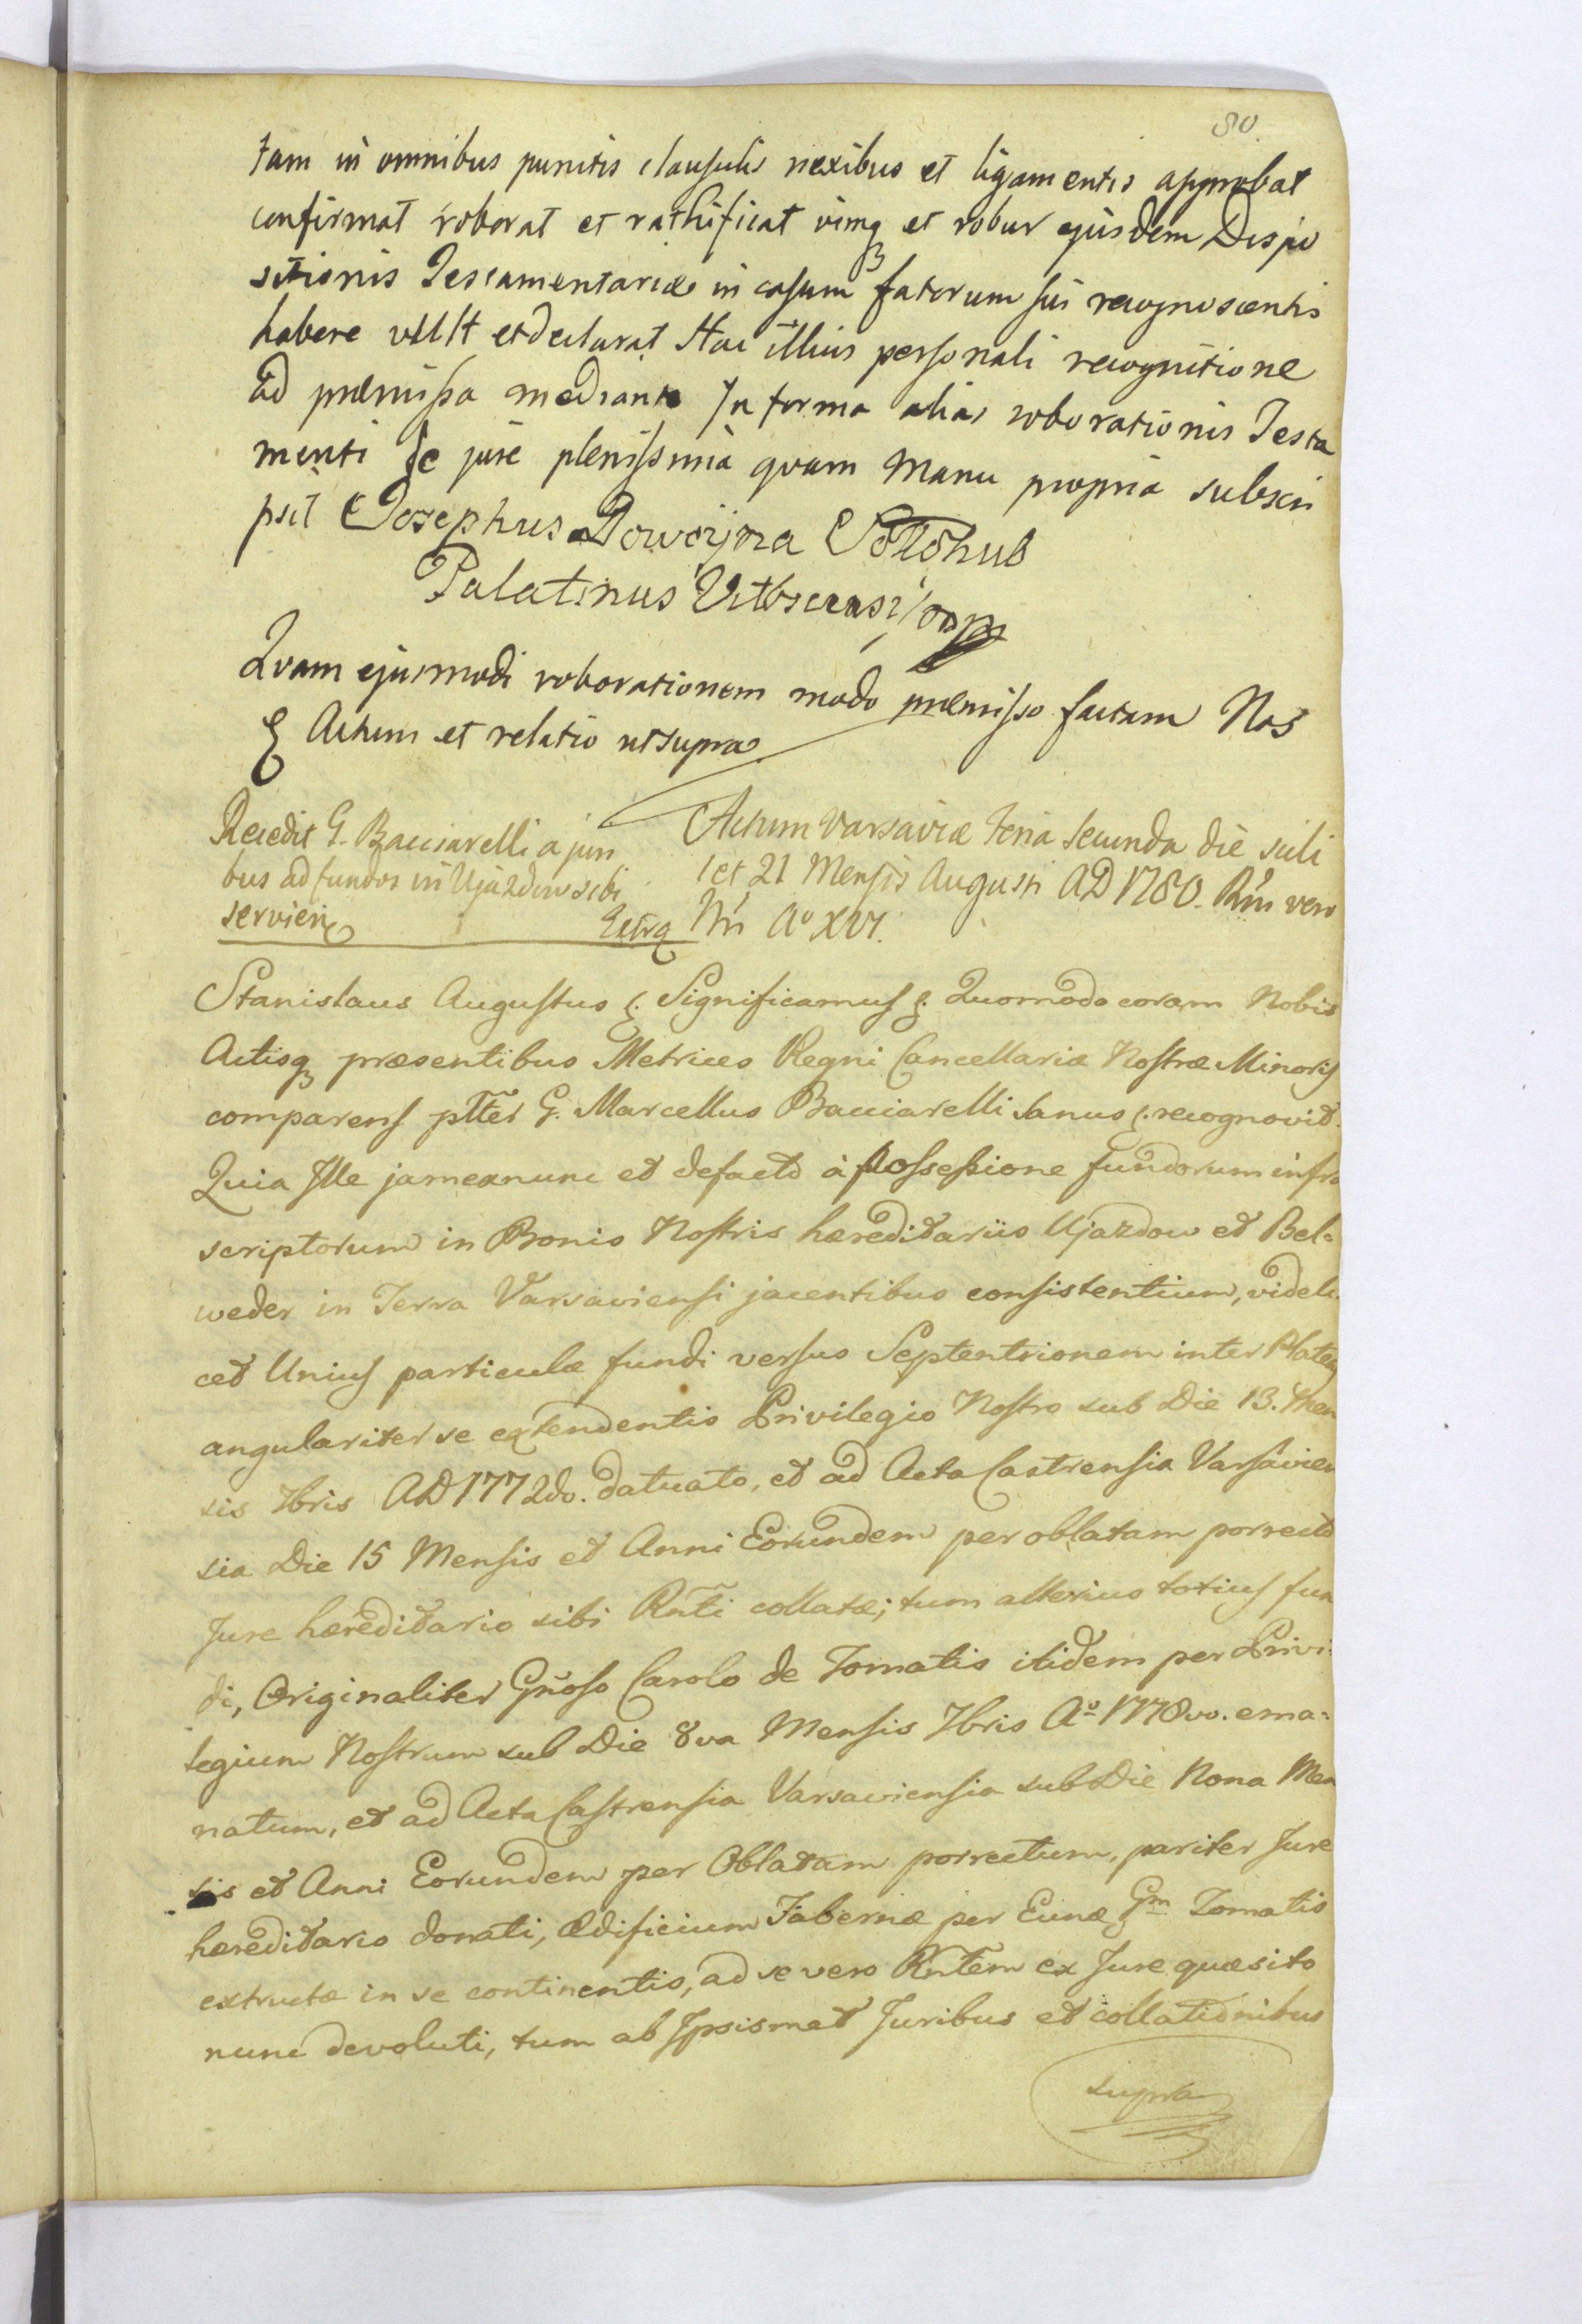 80
tam in omnibus punctis clausulis nexibus et ligamentis approbat
confirmat roborat et rathificat vimq et robur ejusdem Dispo
sitionis Testamentariæ in casum fatorum sui recognoscentis
habere vult et declarat Hac illius personali recognitione
ad præmissa mediante In forma alias roborationis Testa
menti de jure plenissima quam Manu propria subscri
psit Josephus Dowoyna Sołłohub
Palatinus Vitbscensis
Quam ejusmodi roborationem modo præmisso factam Nos
Actum et relatio ut supra
Recedit G. Bacciarelli a juri
bus ad fundos in Ujazdow sibi
servien
Actum Varsaviæ Feria Secunda die scili
cet 21 Mensis Augusti AD 1780. Rni vero
Nri Aº XVI.
Stanislaus Augustus &. Significamus &. Quomodo coram Nobis
Actisq præsentibus Metrices Regni Cancellariæ Nostræ Minoris
comparens pltter G. Marcellus Bacciarelli Sanus &. recognovit.
Quia Ille jam ex nunc et de facto à possessione fundorum infra
scriptorum in Bonis Nostris hæreditariis Ujazdow et Bel=
weder in Terra Varsaviensi jacentibus consistentium, videli
cet Unius particulæ fundi versus Septentrionem inter Plateas
angulariter se extendentis Privilegio Nostro sub Die 13. Men
sis Xbris AD 1772do. datuato, et ad Acta Castrensia Varsavien
sia Die 15 Mensis et Anni Eorundem per oblatam porrecto
Jure hæreditario sibi Rnti collatæ; tum alterius totius fun
di, Originaliter Gnoso Carolo de Tomatis itidem per Privi=
legium Nostrum sub Die 8va Mensis Xbris Aº 1778vo. ema=
natum, et ad Acta Castrensia Varsaviensia sub Die Nona Men
sis et Anni Eorundem per Oblatam porrectum, pariter Jure
hæreditario donati, ædificium Tabernæ per Eund Gm Tomatis
extructæ in se continentis, ad se vero Rntem ex Jure quæsito
nunc devoluti, tum ab Ipsismet Juribus et collationibus
supra